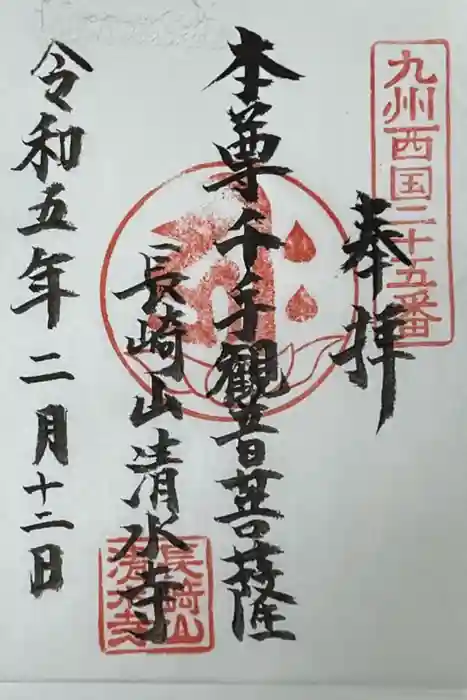 九州西国二十五番
奉拝
本尊千手観音菩薩
長崎山清水寺
長崎山清水寺
令和五年二月十二日